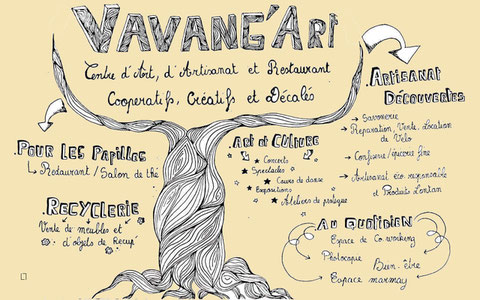 VAVANG'ART
Centre d'Art, d'Artisanat et Restaurant
Coopératifs, Créatifs et Décalés
ARTISANAT
DÉCOUVERTES
→ Savonnerie
→ Réparation, Vente, Location
de Vélo
→ Confiserie / épicerie fine
→ Artisanat éco responsable
et Produits Lontan
POUR LES PAPILLES
→ Restaurant / Salon de thé
ART ET CULTURE
★ Concerts
★ Spectacles
★ Cours de danse
★ Expositions
★ Ateliers de pratique
RECYCLERIE
Vente de meubles et
d'objets de Récup'
AU QUOTIDIEN
Espace de Co working
Photocopie
Bien-être
Espace marmay